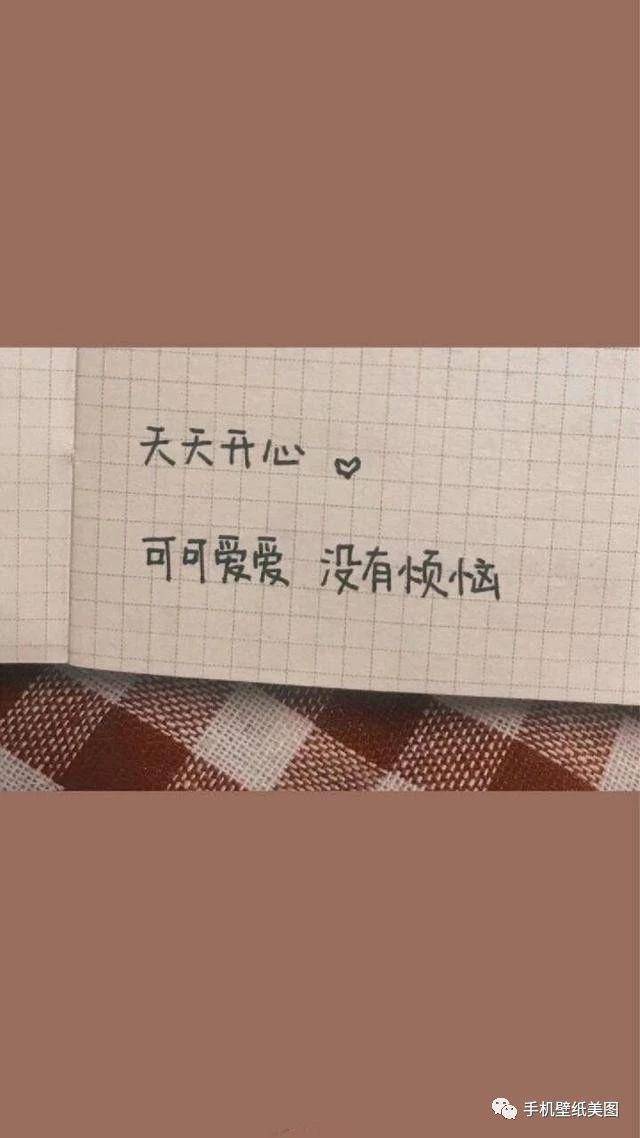 天天开心
可可爱爱 没有烦恼
手机壁纸美图